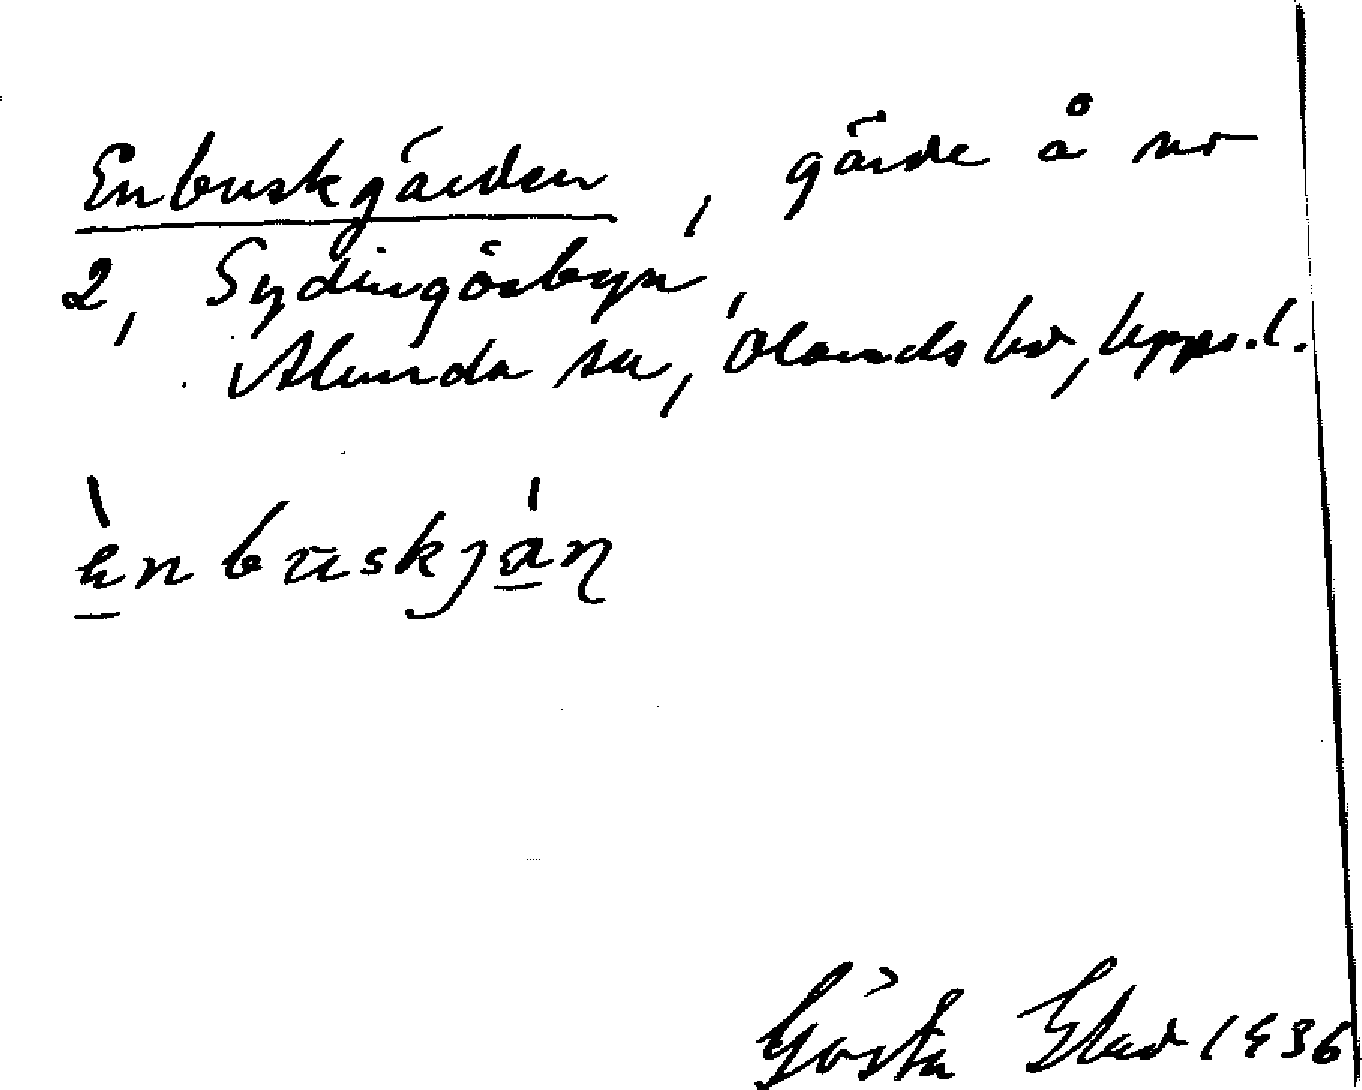 Enbuskgärden, gärde å nr
2, Sydingösbyn,
Alunda sn, Olands hd, Upps. l.
ὲnbuskján
Gösta 1936